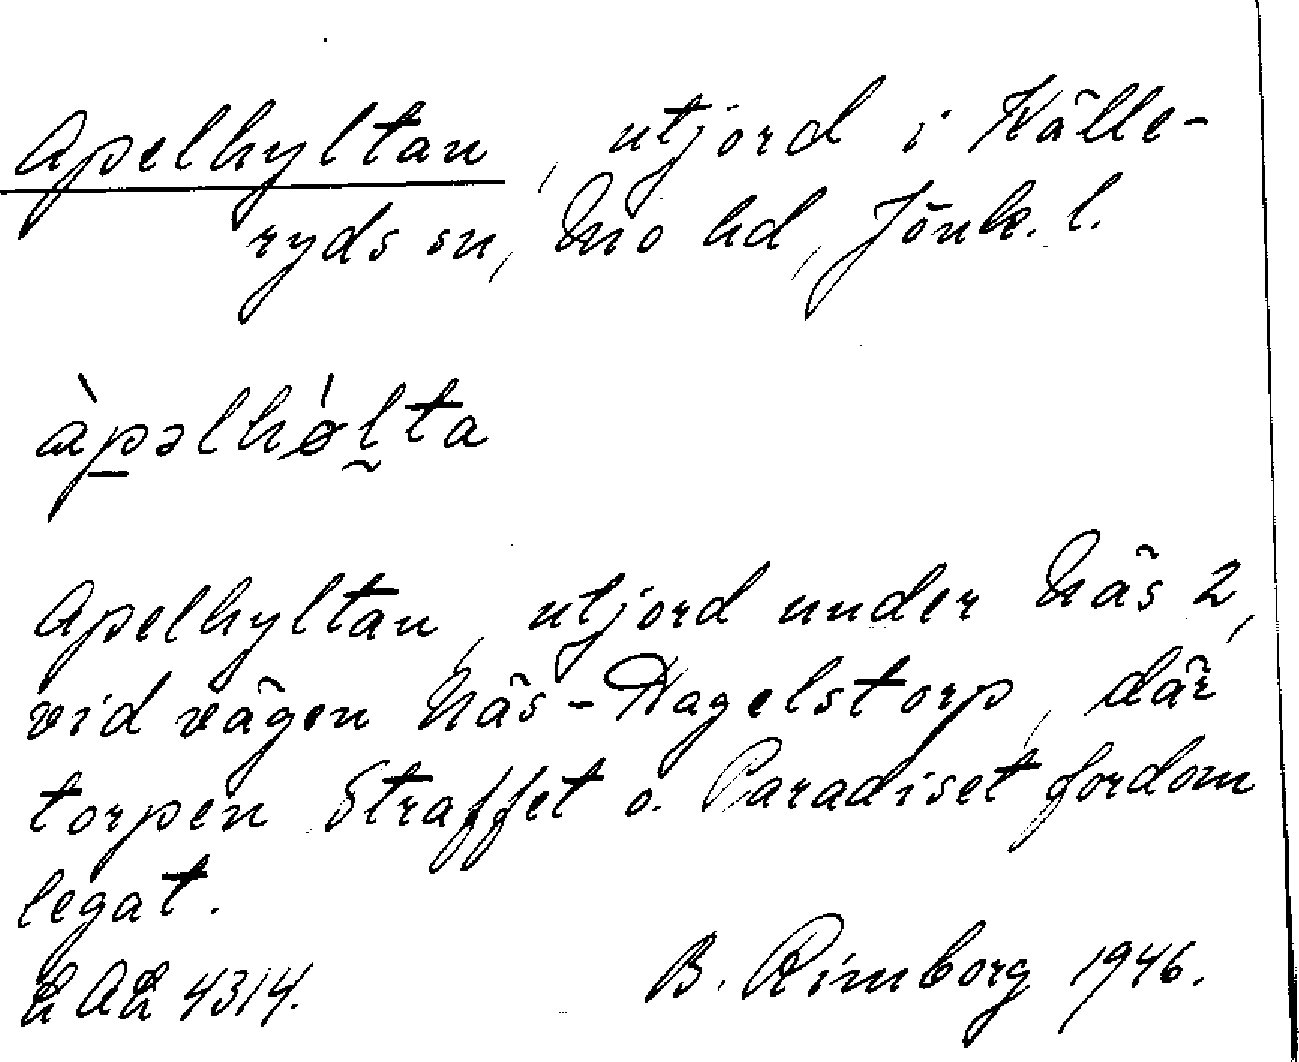 Apelhyltan, utjord i Källe-
ryds sn, Mo hd, Jönk. l.
àpəlhø̀lta
Apelhyltan, utjord under Näs 2,
vid vägen Näs - Hagelstorp, där
torpen Straffet o. Paradiset fordom
legat.
B. Rimborg 1946.